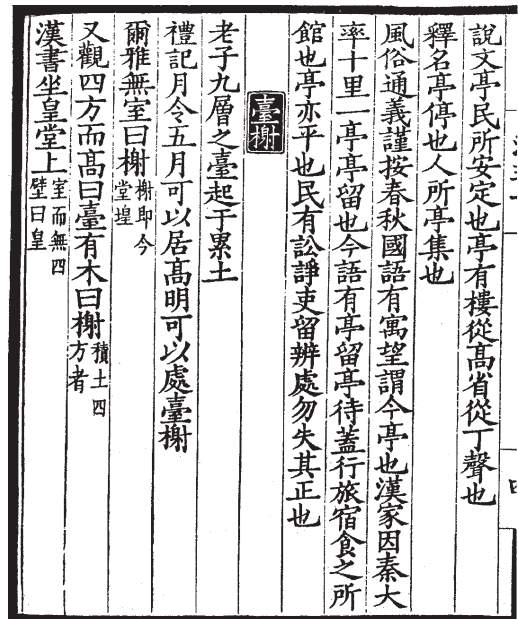 說文亭民所安定也亭有樓從高省從丁聲也
釋名亭停也人所亭集也
風俗通義謹按春秋國語有寓望謂今亭也漢家因秦大
率十里一亭亭留也今語有亭留亭待蓋行旅宿食之所
館也亭亦平也民有訟諍吏留辨處勿失其正也
臺榭
老子九層之臺起于累土
禮記月令五月可以居高明可以處臺榭
爾雅無室曰榭榭即今堂堭
又觀四方而高曰臺有木曰榭積土四方者
漢書坐皇堂上室而無四壁曰皇